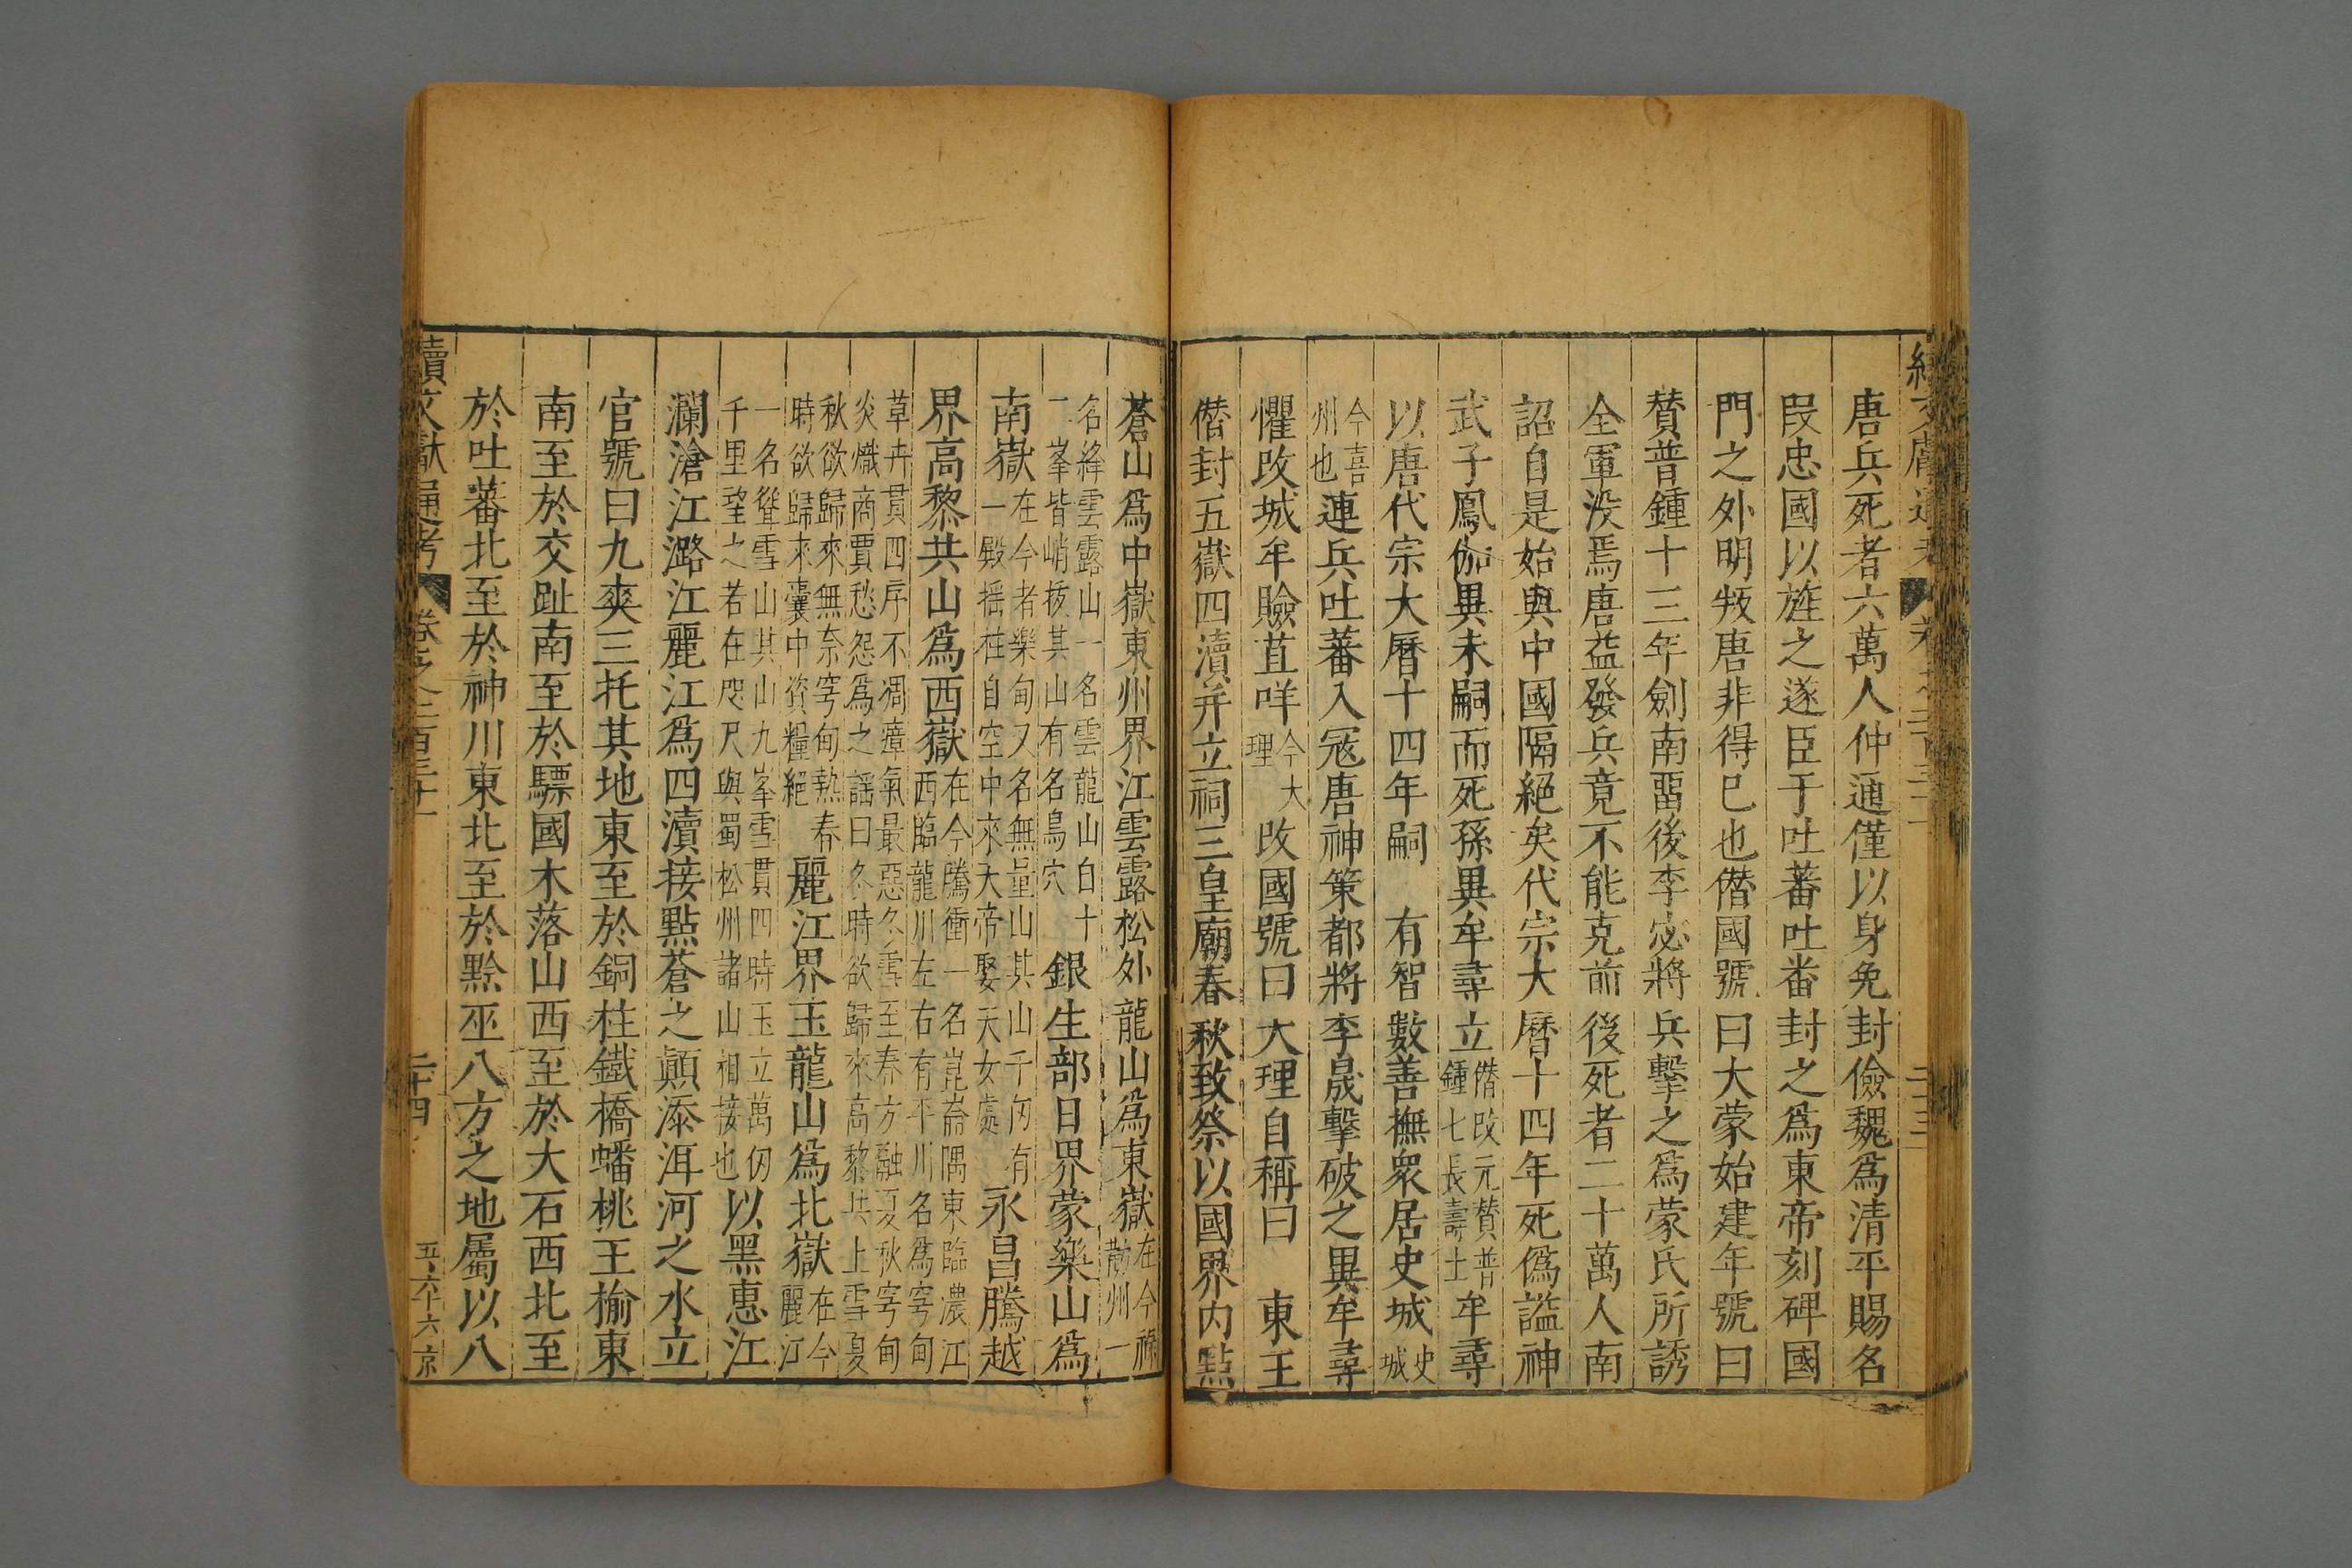 唐兵死者六萬人仲通僅以身免封儉魏爲清平賜名
段忠國以旌之遂臣于吐蕃吐畨封之爲東帝刻碑國
門之外明叛唐非得已也僭國號曰大蒙始建年號曰
贊普鍾十三年劍南畱後李宓將兵擊之爲蒙氏所誘
全軍没焉唐益發兵竟不能克前後死者二十萬人南
詔自是始與中國隔絕矣代宗大曆十四年死僞謚神
武子鳳伽異未嗣而死孫異牟尋立僭改元贊普鍾七長壽士牟尋
以唐代宗大曆十四年嗣有智數善撫衆居史城史城
今喜州也連兵吐蕃入冦唐神策都將李晟擊破之異牟尋
懼改城牟瞼苴咩今大理改國號曰大理自稱曰東王
僭封五嶽四瀆并立祠三皇廟春秋致祭以國界内點
蒼山爲中嶽東州界江雲露松外龍山爲東嶽在今祿勸州一
名絳雲露山一名雲龍山白十二峯皆峭拔其山有名鳥穴銀生部日界蒙樂山爲
南嶽在今者樂甸又名無量山其山千仞有一殿摇柱自空中來天帝娶天女處永昌騰越
界高黎共山爲西嶽在今騰衝一名崑崙隅東臨濃江西臨龍川左右有平川名爲穹甸
草卉貫四序不凋瘴氣最惡冬雪至春方融夏秋穹甸炎熾商賈愁怨爲之謡曰冬時欲歸來高黎共上雪夏
秋欲歸來無奈穹甸熱春時欲歸來囊中資糧絕麗江界玉龍山爲北嶽在今麗江
一名聳雪山其山九峯雪貫四時玉立萬仞千里望之若在咫尺與蜀松州諸山相接也以黑惠江
瀾滄江潞江麗江爲四瀆接點蒼之顛添洱河之水立
官號曰九爽三托其地東至於銅柱鐵橋蟠桃王榆東
南至於交趾南至於驃國木落山西至於大石西北至
於吐蕃北至於神川東北至於黔巫八方之地屬以八
續文獻通考
卷之二百三十一
二十四
五六十六京